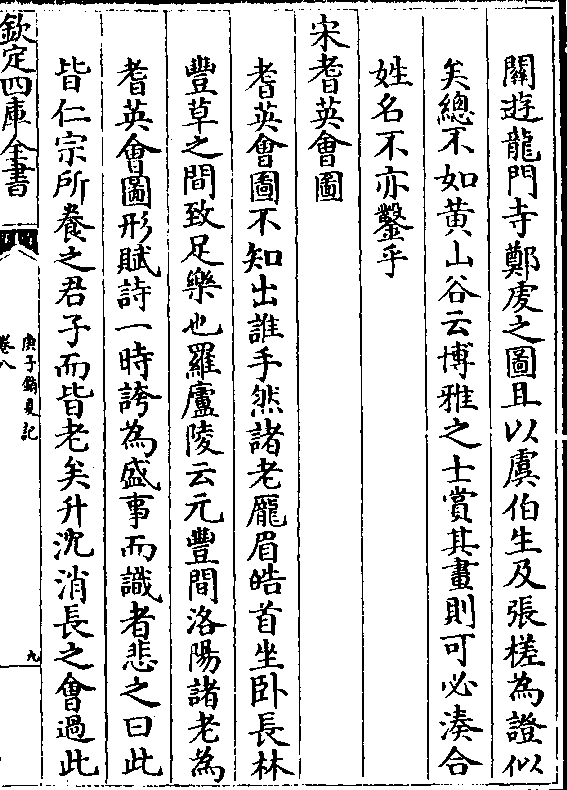 關遊龍門寺鄭虔之圖且以虞伯生及張槎為證似
矣總不如黄山谷云博雅之士賞其畫則可必湊合
姓名不亦鑿乎
宋耆英會圖
耆英會圖不知出誰手然諸老龎眉皓首坐卧長林
豐草之間致足樂也羅廬陵云元豐間洛陽諸老為
耆英會圖形賦詩一時誇為盛事而識者悲之曰此
皆仁宗所養之君子而皆老矣升沈消長之會過此
欽定四庫全書
庚子銷夏記
卷八
九